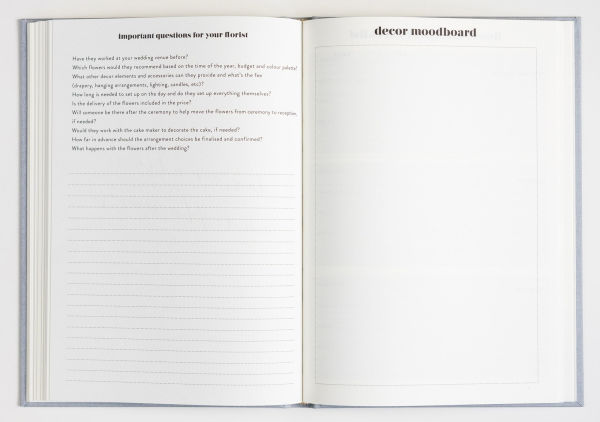 Important questions for your florist
Have they worked at your wedding venue before?
Which flowers would they recommend based on the time of the year, budget and colour palette?
What other decor elements and accessories can they provide and what's the fee
(drapery, hanging arrangements, lighting, candles, etc)?
How long is needed to set up on the day and do they set up everything themselves?
Is the delivery of the flowers included in the price?
Will someone be there after the ceremony to help move the flowers from ceremony to reception,
if needed?
Would they work with the cake maker to decorate the cake, if needed?
How far in advance should the arrangement choices be finalised and confirmed?
What happens with the flowers after the wedding?
decor moodboard